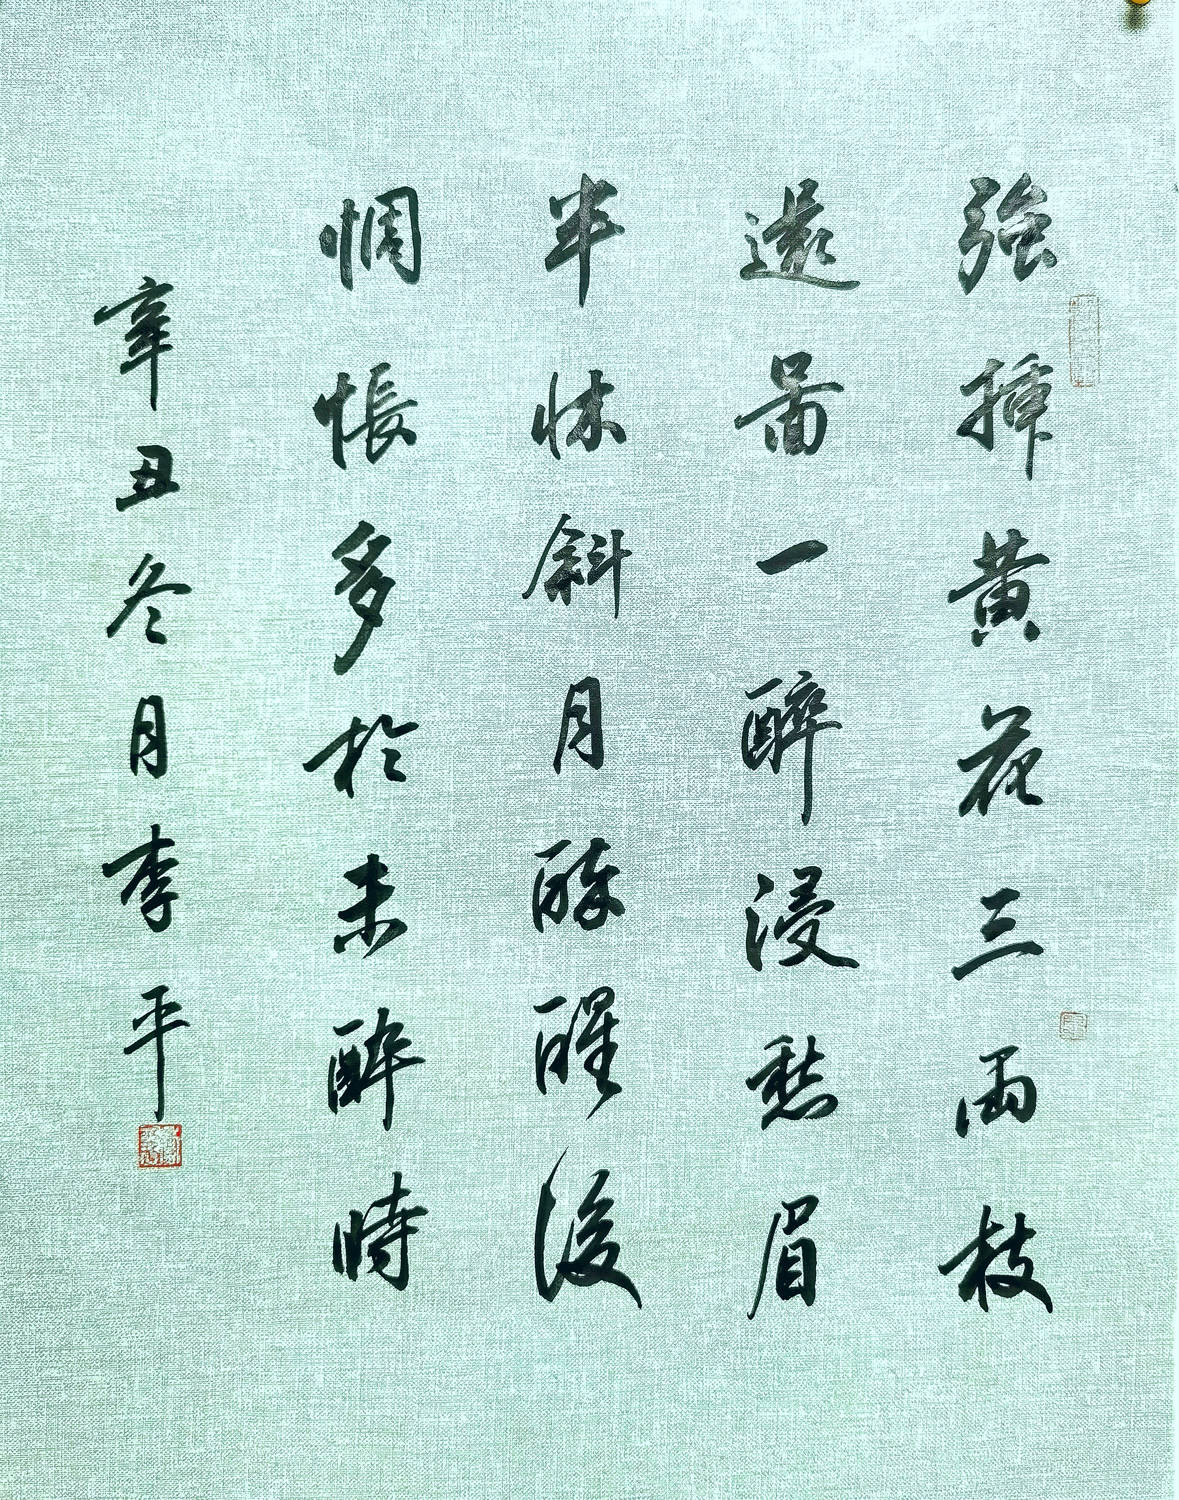 強插黄花三兩枝
還啚一醉浸愁眉
半牀斜月醉醒後
惆悵多於未醉時
辛丑冬月李平